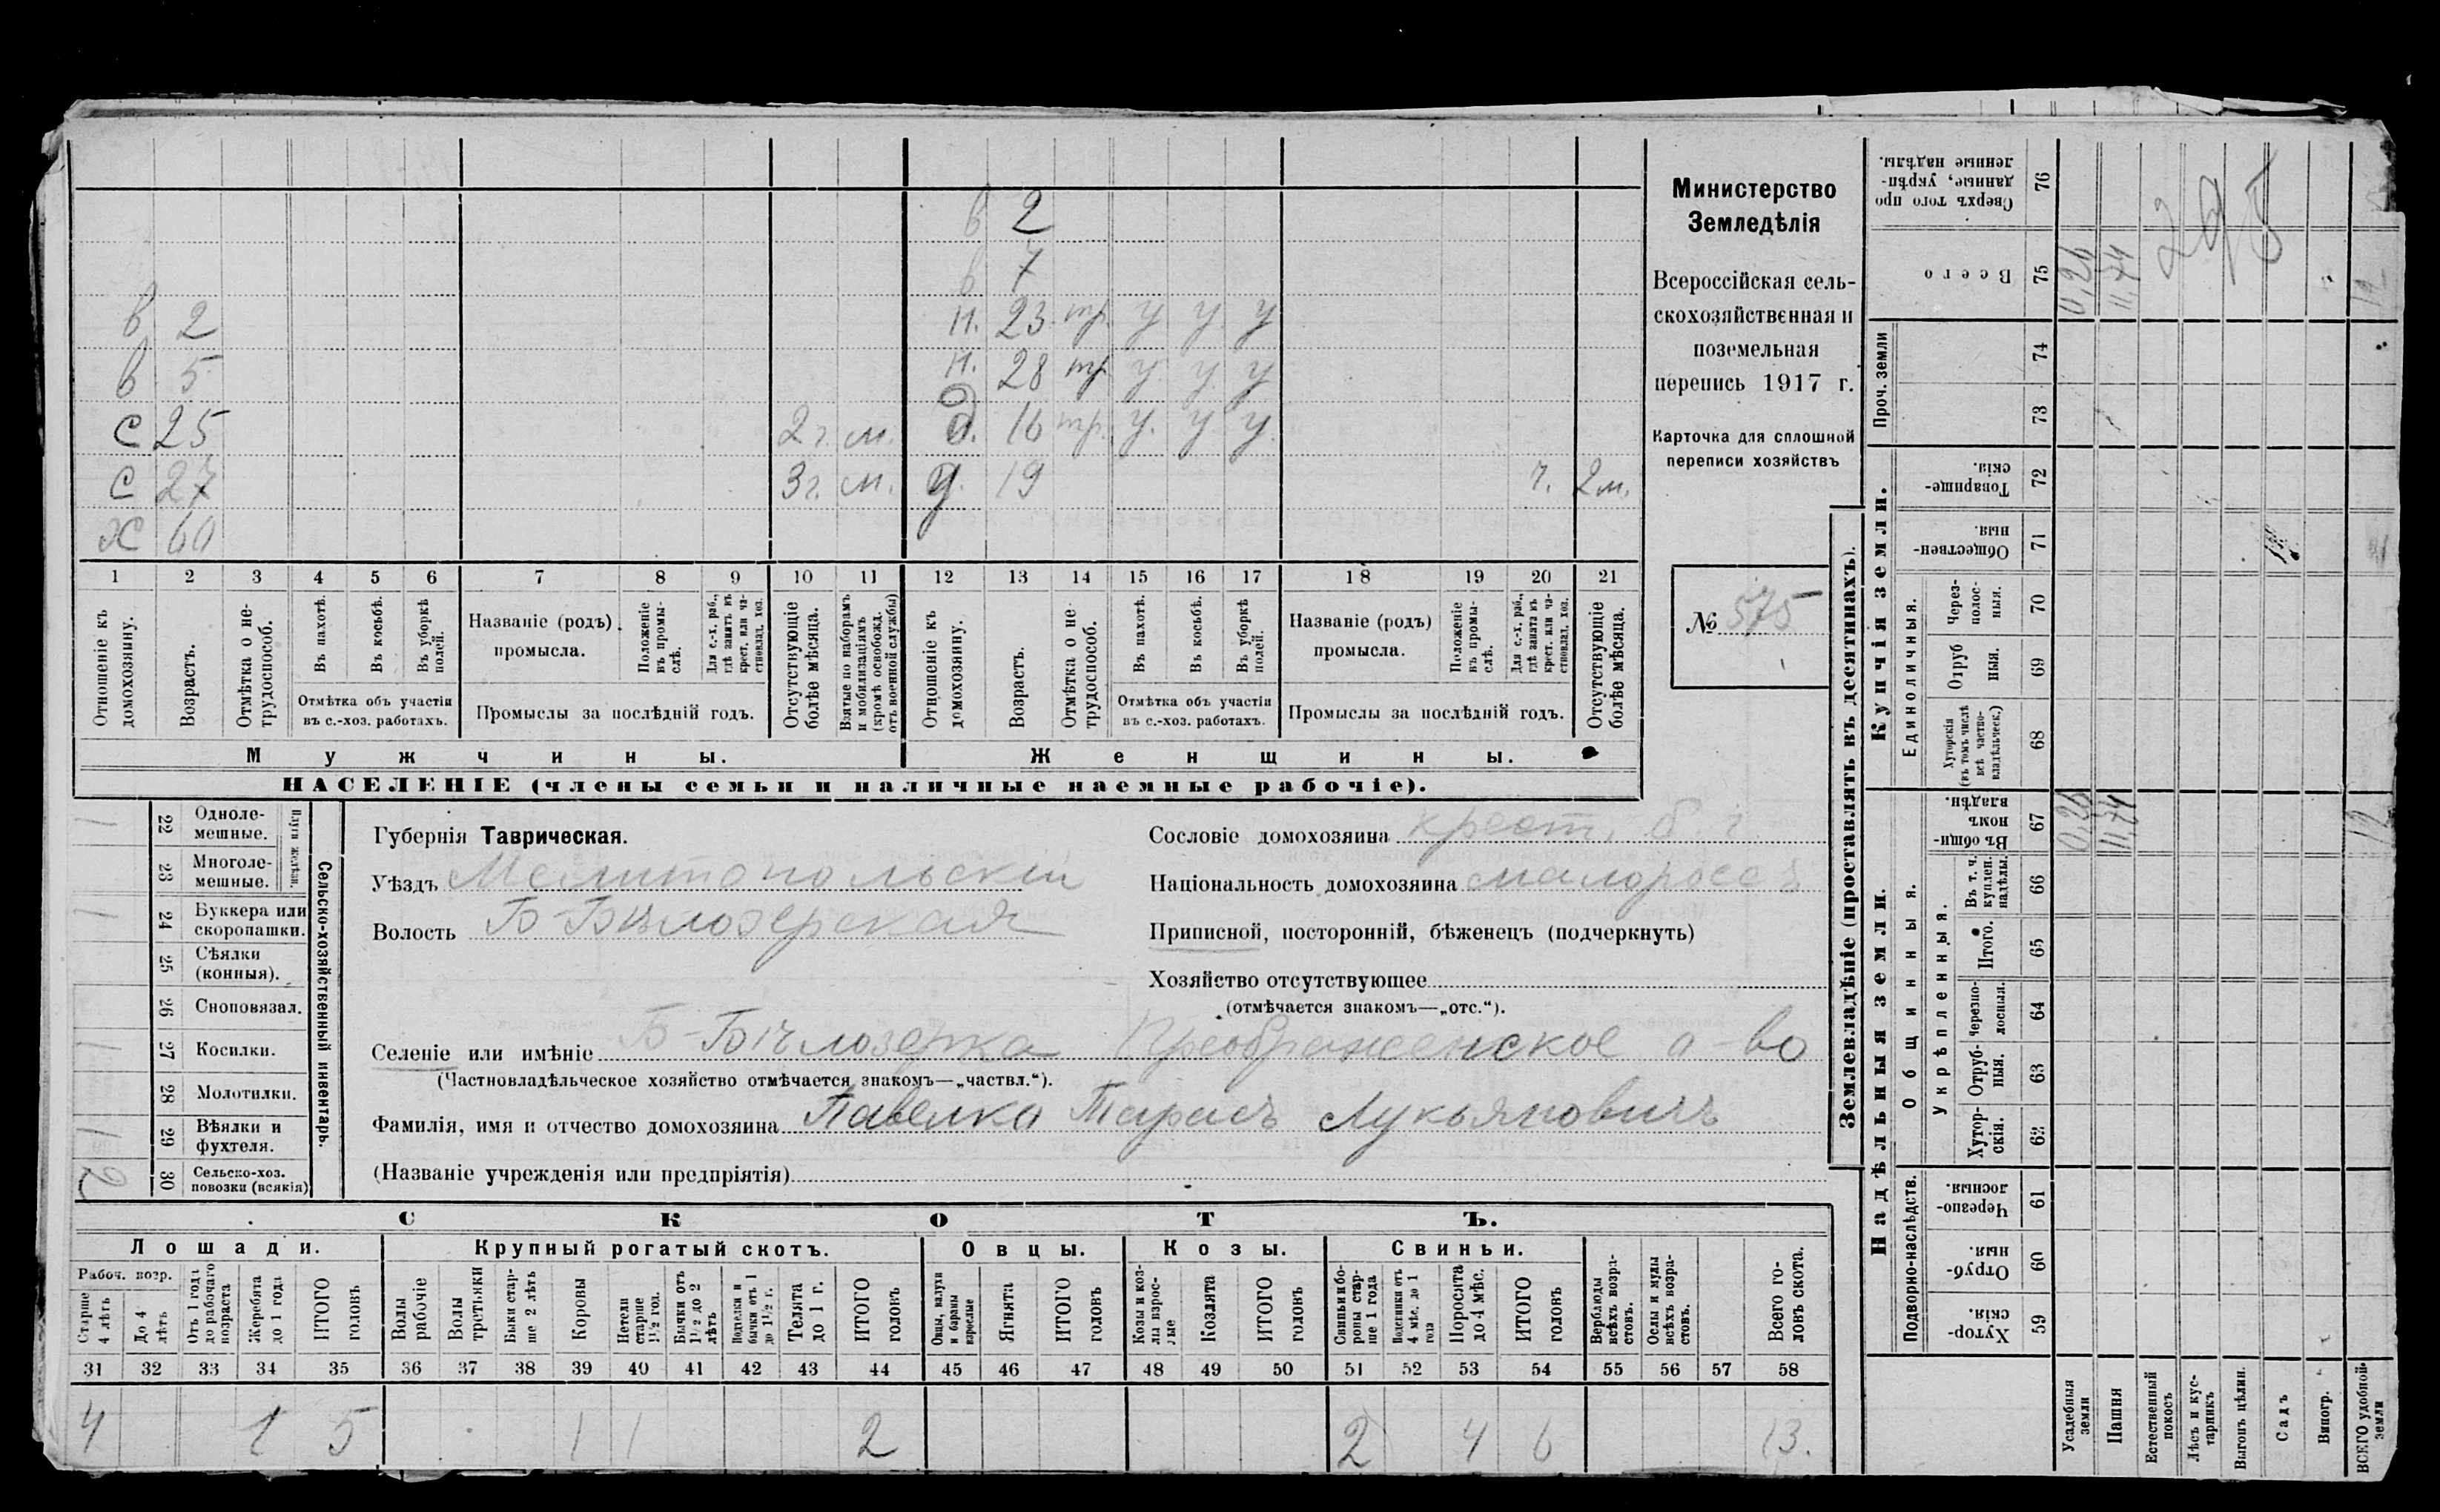 в 2
в 7
в 2 н. 23 тр. у у у
в 5 н. 28 тр. у у у
с 25 2 г. м. д. 16 тр. у. у у
с 27 3 г. м. д. 19 2 м.
х 60
1 2 3 4 5 6 7 8 9 10 11 12 13 14 15 16 17 18 19 20 21
Отношеніе къ домохозяину.
Возрастъ.
Отмѣтка о не-трудоспособ.
Въ пахотѣ.
Въ косьбѣ.
Въ уборкѣ полей.
Отмѣтка объ участіи
въ с.-хоз. работахъ.
Названіе (родъ)
промысла.
Положеніе въ промы-слѣ.
Для с.-х. раб., гдѣ занятъ въ крест. или ча-стновлад. хоз.
Промыслы за послѣдній годъ.
Отсутствующіе болѣе мѣсяца.
Взятые по наборамъ и мобилизаціямъ (кромѣ освобожд. отъ военной службы)
Отношеніе къ домохозяину.
Возрастъ.
Отмѣтка о не-трудоспособ.
Въ пахотѣ.
Въ косьбѣ.
Въ уборкѣ полей.
Отмѣтка объ участіи
въ с.-хоз. работахъ.
Названіе (родъ)
промысла.
Положеніе въ промы-слѣ.
Для с.-х. раб., гдѣ занята въ крест. или ча-стновлад. хоз.
Промыслы за послѣдній годъ.
Отсутствующіе болѣе мѣсяца.
Мужчины. Женщины.
НАСЕЛЕНІЕ (члены семьи и наличные наемные рабочіе).
Министерство
Земледѣлія
Всероссійская сель-
скохозяйственная и
поземельная
перепись 1917 г.
Карточка для сплошной
переписи хозяйствъ
№ 575
Сельско-хозяйственный инвентарь.
Плуги желѣзн.
22 Одноле-мешные. 1
23 Многоле-мешные.
24 Буккера или скоропашки. 1
25 Сѣялки (конныя).
26 Сноповязал.
27 Косилки. 1
28 Молотилки.
29 Вѣялки и фухтеля. 1
30 Сельско-хоз. повозки (всякія) 2
Губернія Таврическая.
Уѣздъ Мелитопольскій
Волость Б-Бѣлозерская
Сословіе домохозяина крест.
Національность домохозяина малороссъ
Приписной, посторонній, бѣженецъ (подчеркнуть)
Хозяйство отсутствующее
(отмѣчается знакомъ—„отс.“).
Селеніе или имѣніе Б-Бѣлозерка Преображенское о-во
(Частновладѣльческое хозяйство отмѣчается знакомъ—„частвл.“).
Фамилія, имя и отчество домохозяина Павелка Тарасъ Лукьяновичъ
(Названіе учрежденія или предпріятія)
СКОТЪ.
Лошади. Крупный рогатый скотъ. Овцы. Козы. Свиньи.
Рабоч. возр.
Старше 4 лѣтъ
До 4 лѣтъ
Отъ 1 года до рабочаго возраста
Жеребята до 1 года
ИТОГО головъ
Волы рабочіе
Волы третьяки
Быки стар-ше 2 лѣтъ
Коровы
Нетели старше 1½ год.
Бычки отъ 1½ до 2 лѣтъ
Подтелки и бычки отъ 1 до 1½ г.
Телята до 1 г.
ИТОГО головъ
Овцы, валухи и бараны взрослые
Ягнята
ИТОГО головъ
Козы и коз-лы взрос-лые
Козлята
ИТОГО головъ
Свиньи и бо-ровы стар-ше 1 года
Подсвинки отъ 4 мѣс. до 1 года
Поросята до 4 мѣс.
ИТОГО головъ
Верблюды всѣхъ возра-стовъ.
Ослы и мулы всѣхъ возра-стовъ.
Всего го-ловъ скота.
31 32 33 34 35 36 37 38 39 40 41 42 43 44 45 46 47 48 49 50 51 52 53 54 55 56 57 58
4 1 5 1 1 2 2 4 6 13.
Землевладѣніе (проставлять въ десятинахъ).
Сверхъ того про данные, укрѣп-ленные надѣлы. 76
Всего 75 0,26 11,74 12
295
Проч. земли 74 73
Купчія земли.
Товарище-скія. 72
Обществен-ныя. 71
Единоличныя.
Через-полос-ныя. 70
Отруб ныя. 69
Хуторскія (въ томъ числѣ всѣ частно-владѣльческ.) 68
Надѣльныя земли.
Общинныя.
Въ общи-номъ владѣн. 67 0,26 11,74 12
Укрѣпленныя.
Въ т. ч. куплен. надѣлы. 66
Итого. 65
Черезпо-лосныя. 64
Отруб-ныя. 63
Хутор-скія. 62
Подворно-наслѣдств.
Черезпо-лосныя. 61
Отруб-ныя. 60
Хутор-скія. 59
Усадебныя земли
Пашня
Естественный покосъ
Лѣсъ и кус-тарникъ
Выгонъ цѣлин.
Садъ
Виногр.
ВСЕГО удобной земли